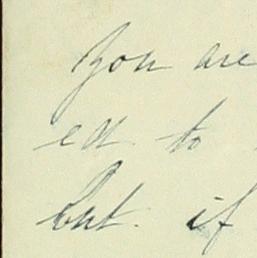 You are
ed to
but if